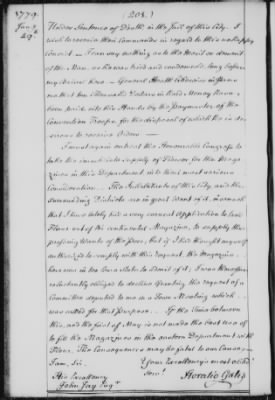 1779.
(208.)
Jany.
29th
under Sentence of Death in the Jail of this City. I
wish to receive their Commands in regard to this unhappy
Convict — I can say nothing as to the Merit or demerit
of the Man, as he was tried and condemned, long before
my Arrival here — General Heath informs
me that two thousand Dollars in hard Money have
been paid into his Hands by the paymaster of the
Convention Troops for the disposal of which he is de-
sirous to receive Orders —
I must again entreat the Honourable Congress to
take the immediate supply of Flour for the Maga
zines in this Department into their most serious
Consideration — The Inhabitants of this City and the
surrounding Districts are in great want of it, insomuch
that I have lately had a very earnest Application to lend
Flour out of the continental Magazine, to supply the
pressing Wants of the poor, but if I had thought myself
authorized to comply with this request the Magazine
here was in too low a State to admit of it; I was therefore
reluctantly obliged to decline granting the request of a
Committee deputed to me in a Town Meeting which
was called for that purpose. If the time between
this, and the first of May is not made the best use of
to fill the Magazines in the eastern Department with
Flour, The Consequences may be fatal to our Cause —
I am, Sir,
Your Excellency's most obed.
Servt.
Horatio Gates
His Excellency
John Jay Esqr.